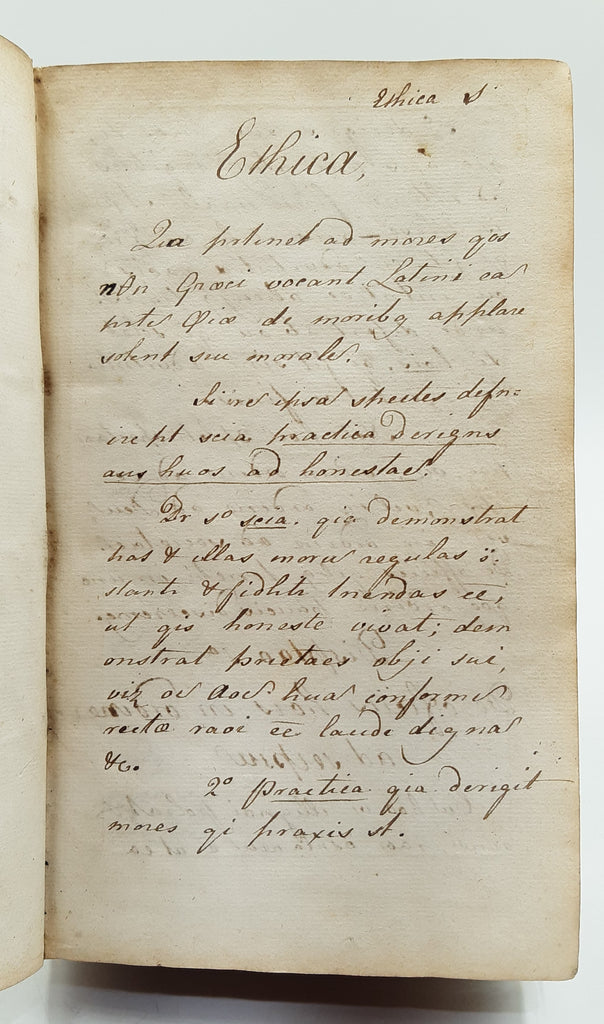 Ethica
Ethica,
Qia prtinet ad mores qos
Græci vocant Latini ea
prte de moribq applare
solent sive morale.
Si ire ipsa spectes defn=
iri pt scia practica derigns
aus huos ad honestae.
Dr 1o scia. qia demonstrat
has & illas moru regulas
stanti & fidliti tnendas ee,
ut qis honeste vivat; dem
onstrat prietaes obji sui,
viz oes aoes huas conformes
rectæ raoi ee laude dignas
&c.
2o practica qia derigit
mores qi praxis st.